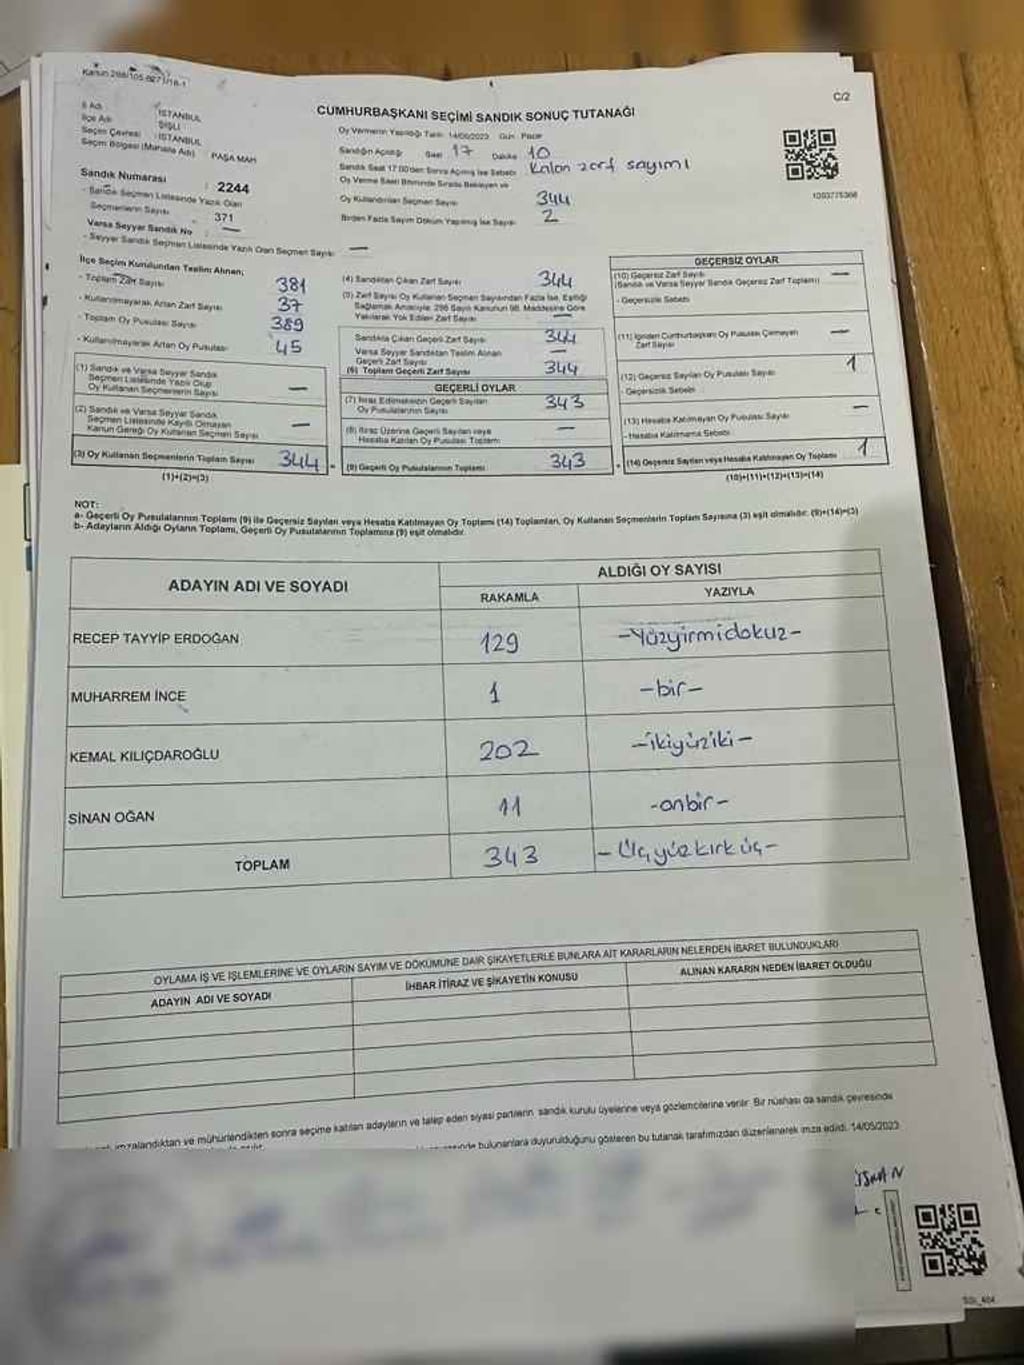 Kanun 298/105-6271/16-1
C/2
CUMHURBAŞKANI SEÇİMİ SANDIK SONUÇ TUTANAĞI
İl Adı : İSTANBUL
İlçe Adı : ŞİŞLİ
Seçim Çevresi : İSTANBUL
Seçim Bölgesi (Mahalle Adı) PAŞA MAH
Sandık Numarası : 2244
- Sandık Seçmen Listesinde Yazılı Olan
Seçmenlerin Sayısı : 371
Varsa Seyyar Sandık No : —
- Seyyar Sandık Seçmen Listesinde Yazılı Olan Seçmen Sayısı: —
Oy Vermenin Yapıldığı Tarih: 14/05/2023 Gün: Pazar
Sandığın Açıldığı Saat 17 Dakika 10
Sandık Saat 17.00'den Sonra Açılmış İse Sebebi: Kalan zarf sayımı
Oy Verme Saati Bitiminde Sırada Bekleyen ve
Oy Kullandırılan Seçmen Sayısı 344
Birden Fazla Sayım Döküm Yapılmış İse Sayısı: 2
1003775366
İlçe Seçim Kurulundan Teslim Alınan;
- Toplam Zarf Sayısı 381
- Kullanılmayarak Artan Zarf Sayısı 37
- Toplam Oy Pusulası Sayısı 389
- Kullanılmayarak Artan Oy Pusulası 45
(1) Sandık ve Varsa Seyyar Sandık
Seçmen Listesinde Yazılı Olup
Oy Kullanan Seçmenlerin Sayısı —
(2) Sandık ve Varsa Seyyar Sandık
Seçmen Listesinde Kayıtlı Olmayan
Kanun Gereği Oy Kullanan Seçmen Sayısı —
(3) Oy Kullanan Seçmenlerin Toplam Sayısı 344
(1)+(2)=(3)
(4) Sandıktan Çıkan Zarf Sayısı 344
(5) Zarf Sayısı Oy Kullanan Seçmen Sayısından Fazla İse, Eşitliği
Sağlamak Amacıyla, 298 Sayılı Kanunun 98. Maddesine Göre
Yakılarak Yok Edilen Zarf Sayısı —
Sandıkta Çıkan Geçerli Zarf Sayısı 344
Varsa Seyyar Sandıktan Teslim Alınan
Geçerli Zarf Sayısı —
(6) Toplam Geçerli Zarf Sayısı 344
GEÇERLİ OYLAR
(7) İtiraz Edilmeksizin Geçerli Sayılan
Oy Pusulalarının Sayısı 343
(8) İtiraz Üzerine Geçerli Sayılan veya
Hesaba Katılan Oy Pusulası Toplamı —
(9) Geçerli Oy Pusulalarının Toplamı 343
GEÇERSİZ OYLAR
(10) Geçersiz Zarf Sayısı
(Sandık ve Varsa Seyyar Sandık Geçersiz Zarf Toplamı) —
- Geçersizlik Sebebi:
(11) İçinden Cumhurbaşkanı Oy Pusulası Çıkmayan
Zarf Sayısı —
(12) Geçersiz Sayılan Oy Pusulası Sayısı 1
- Geçersizlik Sebebi:
(13) Hesaba Katılmayan Oy Pusulası Sayısı —
- Hesaba Katılmama Sebebi:
(14) Geçersiz Sayılan veya Hesaba Katılmayan Oy Toplamı 1
(10)+(11)+(12)+(13)=(14)
NOT:
a- Geçerli Oy Pusulalarının Toplamı (9) ile Geçersiz Sayılan veya Hesaba Katılmayan Oy Toplamı (14) Toplamları, Oy Kullanan Seçmenlerin Toplam Sayısına (3) eşit olmalıdır. (9)+(14)=(3)
b- Adayların Aldığı Oyların Toplamı, Geçerli Oy Pusulalarının Toplamına (9) eşit olmalıdır.
ADAYIN ADI VE SOYADI ALDIĞI OY SAYISI
RAKAMLA YAZIYLA
RECEP TAYYİP ERDOĞAN 129 -Yüzyirmidokuz-
MUHARREM İNCE 1 -bir-
KEMAL KILIÇDAROĞLU 202 -ikiyüziki-
SİNAN OĞAN 11 -onbir-
TOPLAM 343 -Üçyüzkırküç-
OYLAMA İŞ VE İŞLEMLERİNE VE OYLARIN SAYIM VE DÖKÜMÜNE DAİR ŞİKAYETLERLE BUNLARA AİT KARARLARIN NELERDEN İBARET BULUNDUKLARI
ADAYIN ADI VE SOYADI İHBAR İTİRAZ VE ŞİKAYETİN KONUSU ALINAN KARARIN NEDEN İBARET OLDUĞU
imzalandıktan ve mühürlendikten sonra seçime katılan adayların ve talep eden siyasi partilerin sandık kurulu üyelerine veya gözlemcilerine verilir. Bir nüshası da sandık çevresinde
bulunanlara duyurulduğunu gösteren bu tutanak tarafımızdan düzenlenerek imza edildi. 14/05/2023